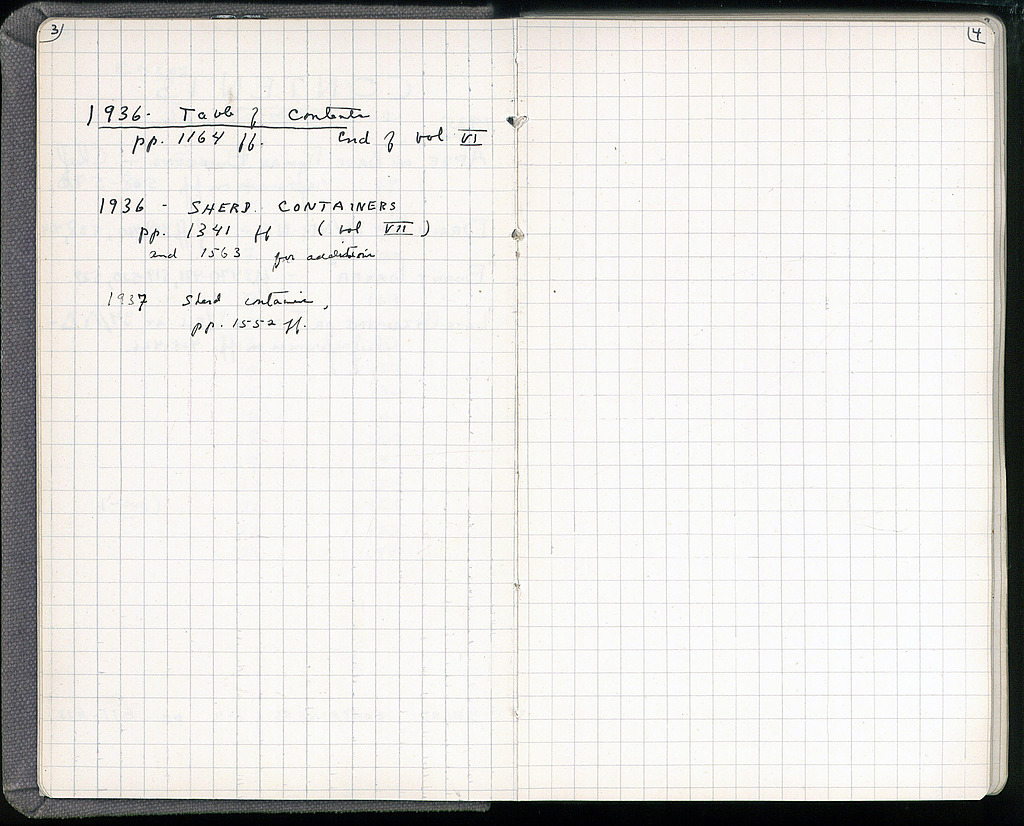 3
1936. Table of Contents
pp. 1164 ff. End of vol VI
1936 - SHERD CONTAINERS
pp. 1341 ff (vol VII)
and 1563 for additions
1937 Sherd containers,
pp. 1552 ff.
4